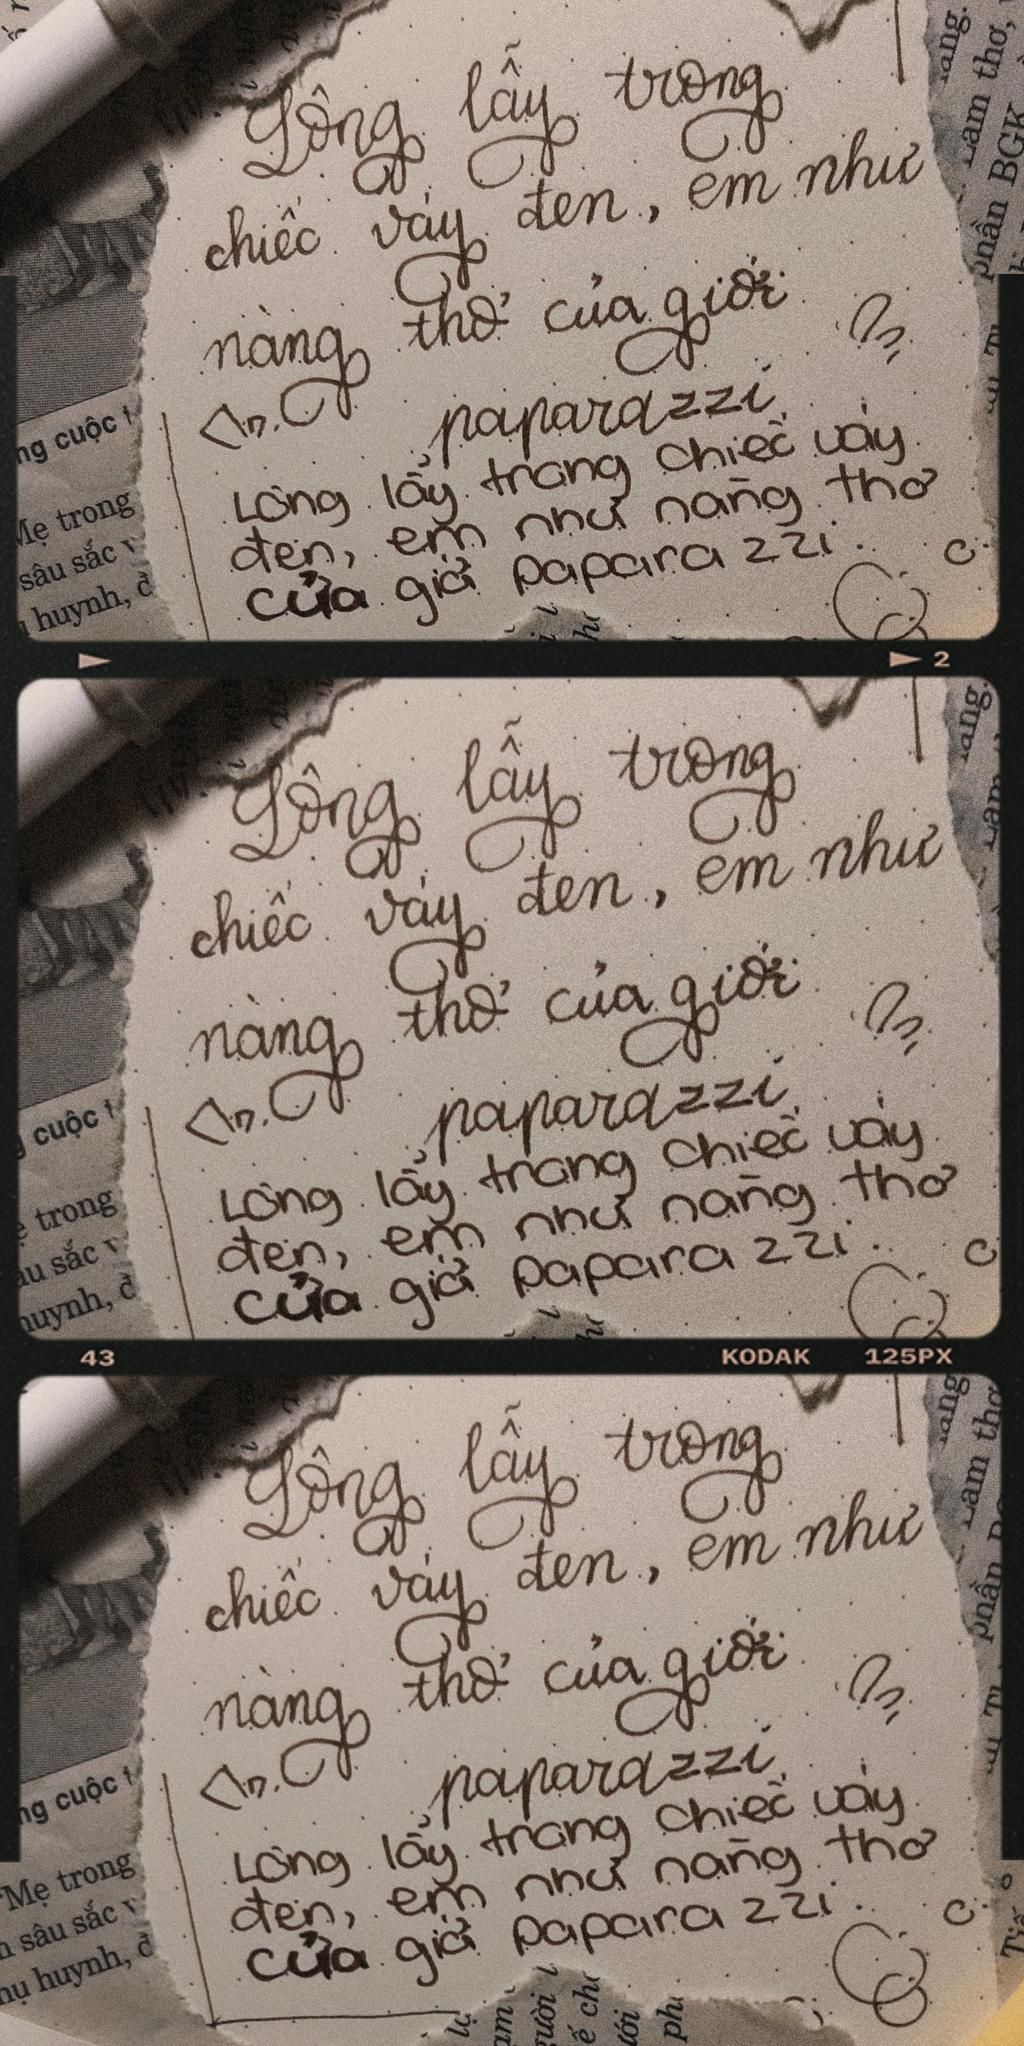 Lộng lẫy trong
chiếc váy đen, em như
nàng thơ của giới
paparazzi
Lộng lẫy trong chiếc váy
đen, em như nàng thơ
của giả paparazzi.
ang.
Làm thơ,
phần BGK
ng cuộc t
Mẹ trong
sâu sắc v
huynh, đ
2
Lộng lẫy trong
chiếc váy đen, em như
nàng thơ của giới
paparazzi
Lộng lẫy trong chiếc váy
đen, em như nàng thơ
của giả paparazzi.
ang.
cuộc t
trong
sắc v
huynh, đ
43 KODAK 125PX
Lộng lẫy trong
chiếc váy đen, em như
nàng thơ của giới
paparazzi
Lộng lẫy trong chiếc váy
đen, em như nàng thơ
của giả paparazzi.
ang
Làm thơ
phần
ng cuộc t
"Mẹ trong
sâu sắc v
hụ huynh, đ